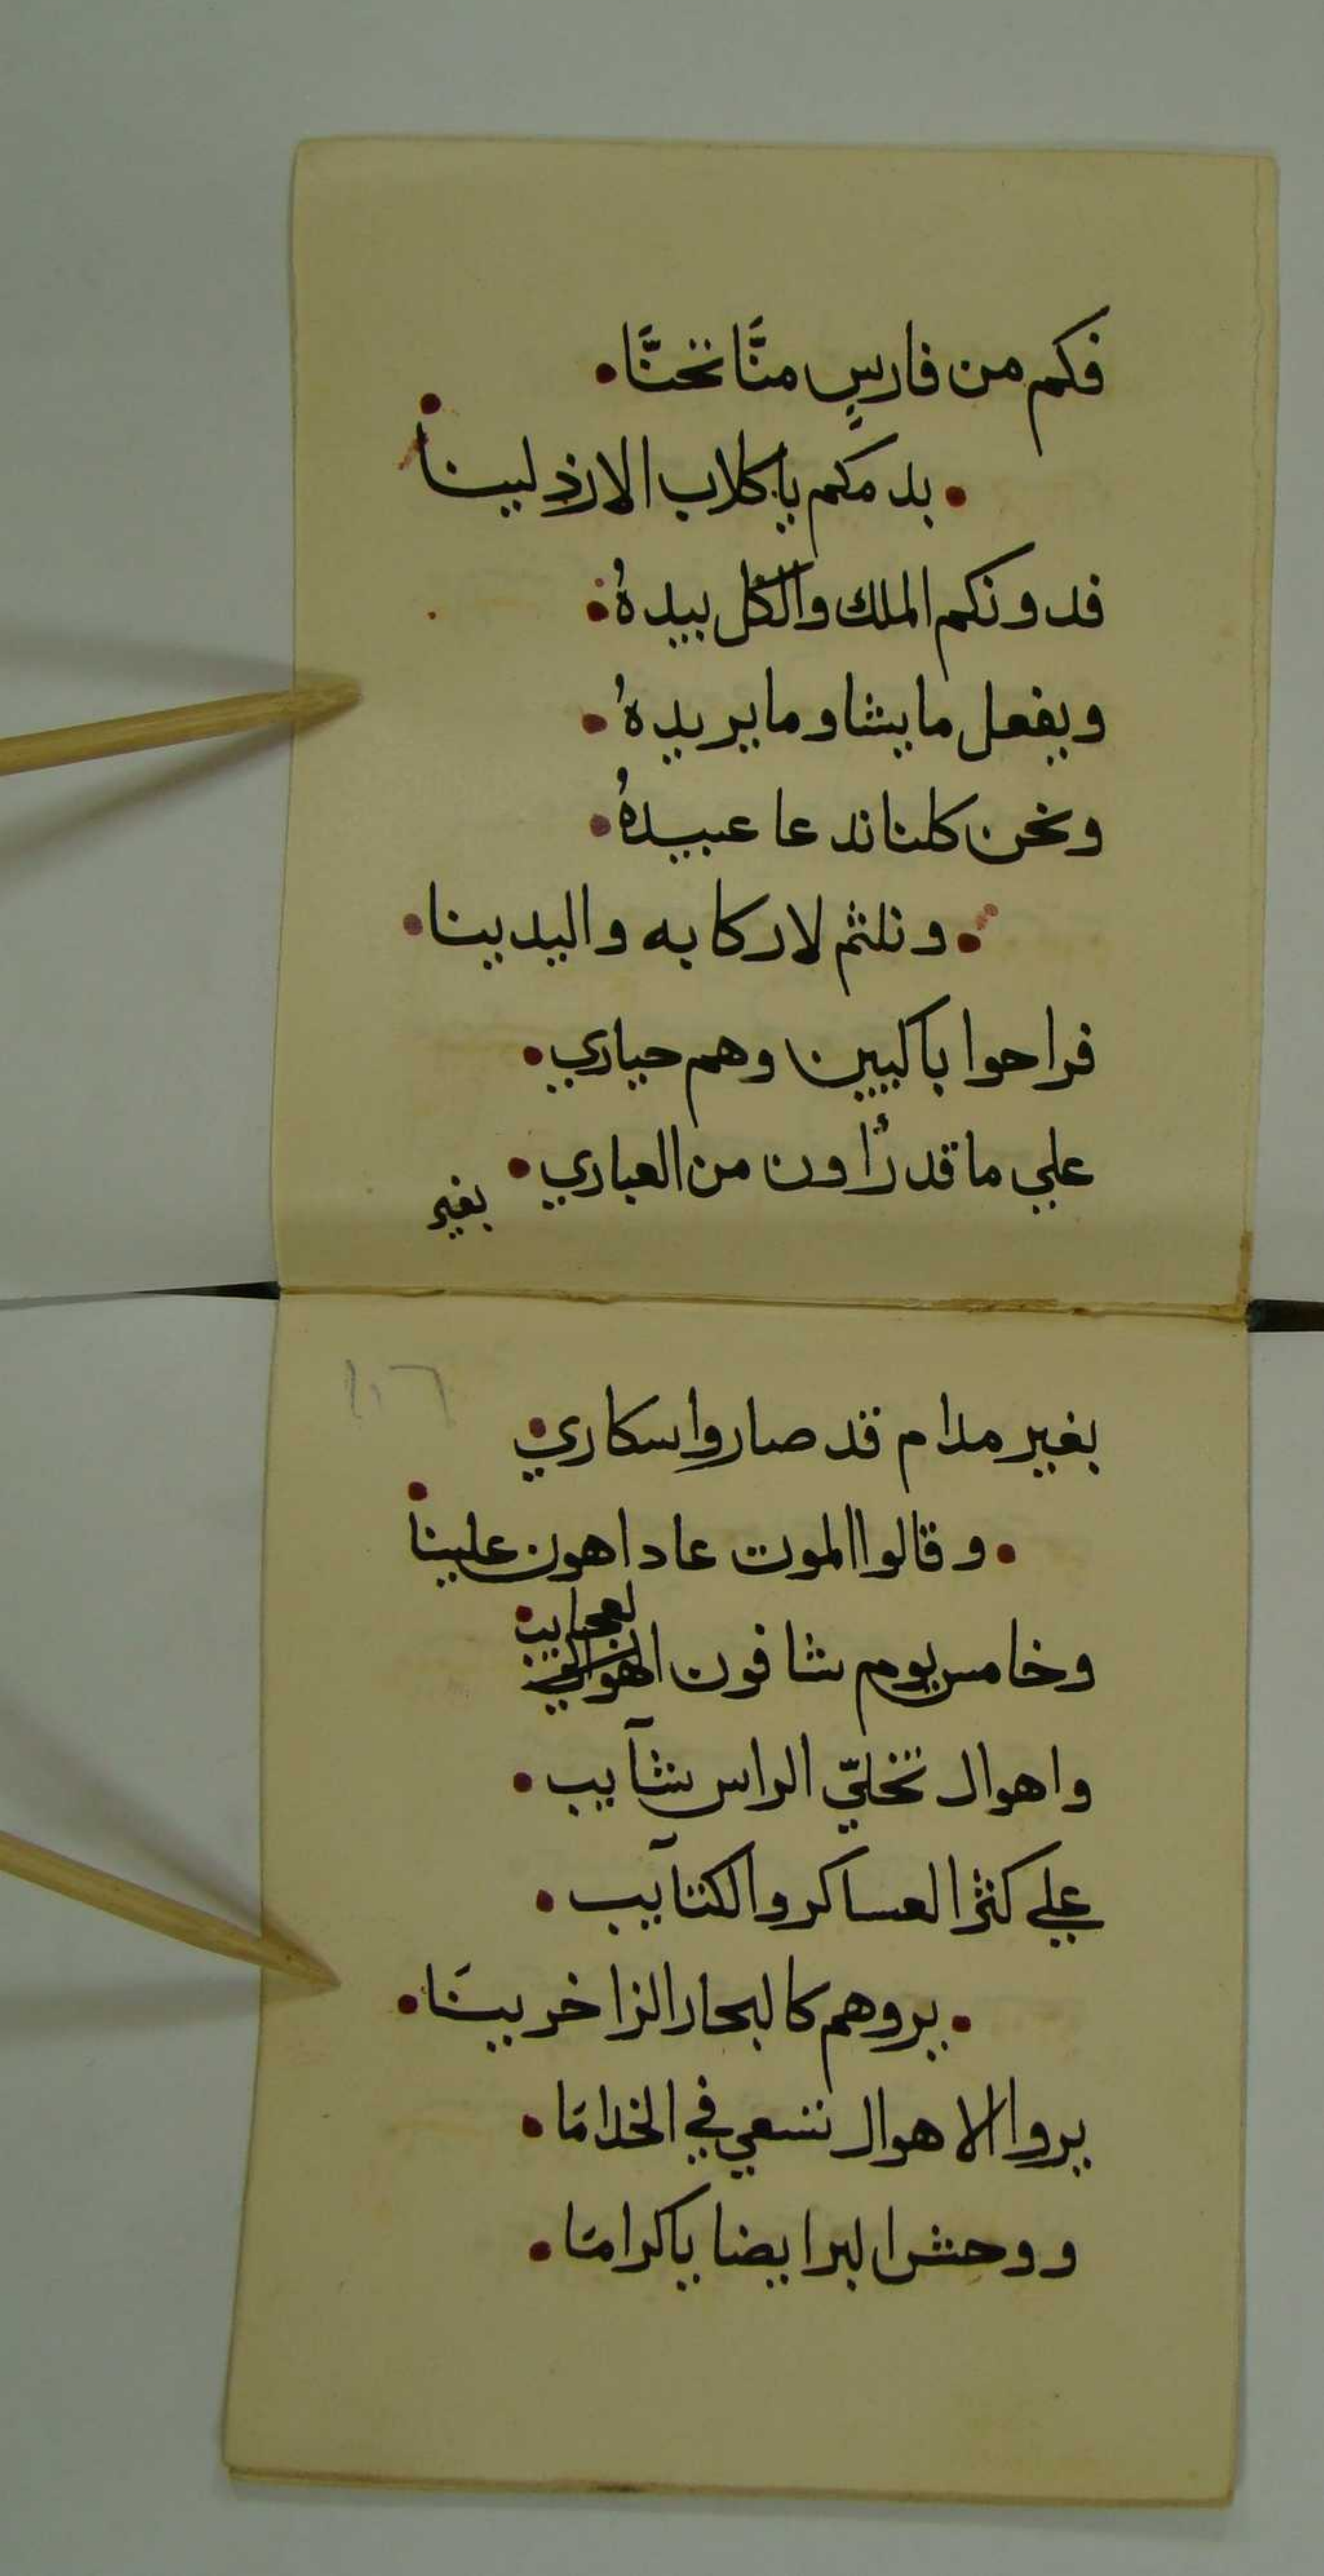 فكم من فارسٍ منَّا تحنَّا
بدمكم ياكلاب الارذلينا
فدونكم الملك والكل بيدهُ
ويفعل مايشا ومايريدهُ
ونحن كلنا ندعا عبيدهُ
ونلثم لاركابه واليدينا
فراحوا باكيين وهم حياري
علي ماقد رَأون من العباري
بغير
١٠٦
بغير مدام قد صاروا سكاري
وقالوا الموت عاد اهون علينا
وخامس يوم شافون العجايب
واهوال تخليّ الراس شآيب
علي كثر العساكر والكتآيب
يروهم كالبحار الزاخرينَا
يروا الاهوال تسعي في الخدامَا
ووحش البر ايضا ياكرامَا